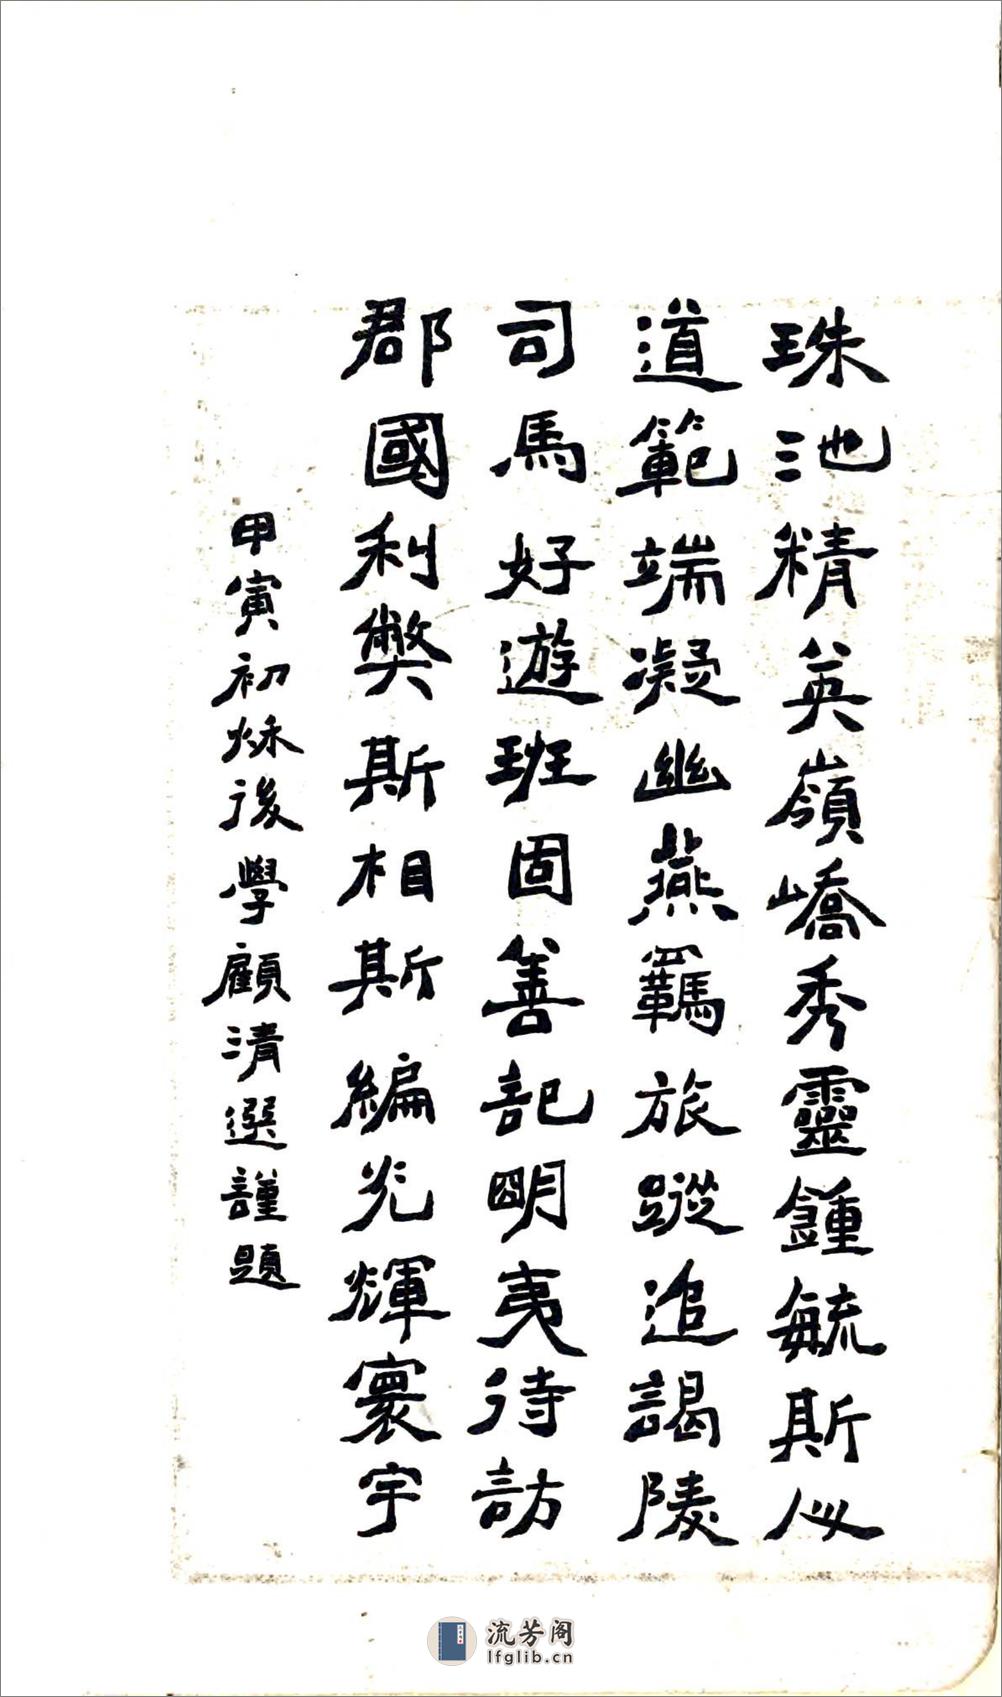 珠池精英嶺嶠秀靈鍾毓斯
道範端凝幽燕羈旅蹤追謁陵
司馬好遊班固善記明夷待訪
郡國利獘斯相斯編光輝寰宇
甲寅初秌後學顧清選謹題
流芳阁
lfglib.cn